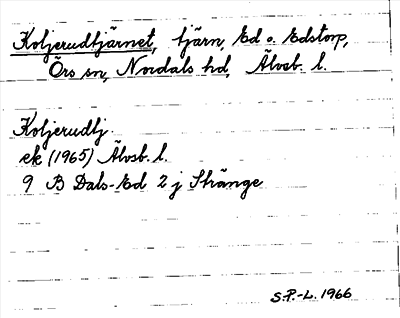 Koljerudtjärnet, tjärn, Ed o. Edstorp,
Örs sn, Nordals hd, Älvsb. l.
Koljerudtj.
ek (1965) Älvsb. l.
9 B Dals-Ed 2 j Stränge
S.P.-L. 1966